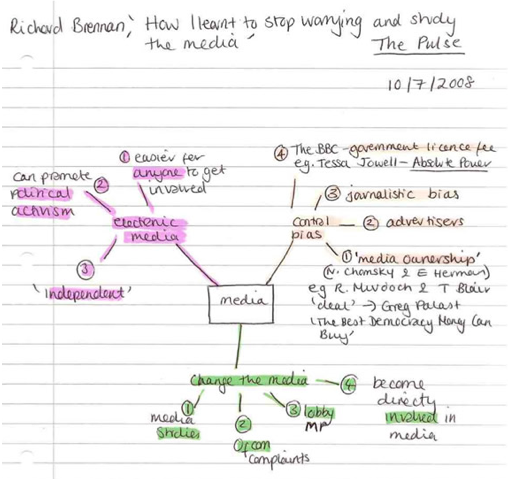 Richard Brennan, 'How I learnt to stop worrying and study
the media' The Pulse
10/7/2008
① easier for
anyone to get
involved
can promote ②
political
activism
electronic
media
③
'independent'
④ The BBC - government licence fee
e.g. Tessa Jowell - Absolute Power
③ jornalistic bias
② advertisers
control
bias
① 'media ownership'
(N. Chomsky & E Herman)
e.g R. Murdoch & T Blair
'deal' → Greg Palast
'The Best Democracy Money Can
Buy'
media
Change the media
①
media
studies
②
Ofcom
complaints
③ lobby
MP
④ become
directly
involved in
media